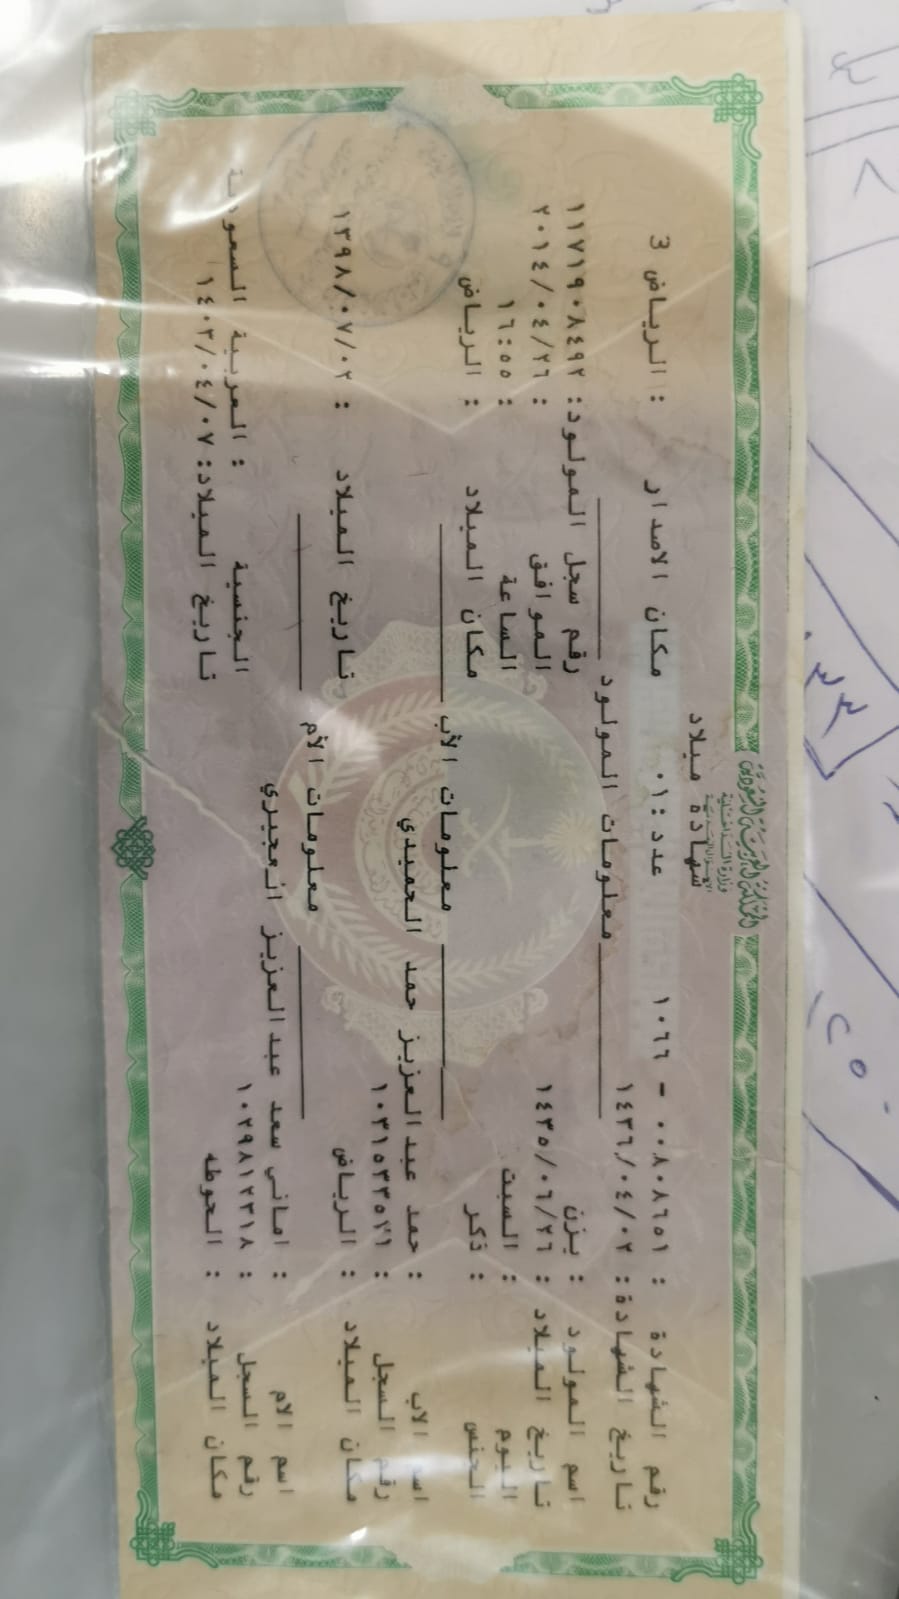 المملكة العربية السعودية
وزارة الداخلية
الأحوال المدنية
شهادة ميلاد
رقم الشهادة : ٠٠٨٠٨٦٥١ - ١٠٦٦ عدد : ٠١ مكان الاصدار : الرياض 3
تاريخ الشهادة : ١٤٣٦/٠٤/٠٢
معلومات المولود
اسم المولود : يزن رقم سجل المولود : ١١٧١٩٠٨٤٩٢
تاريخ الميلاد : ١٤٣٥/٠٦/٢٦ الموافق : ٢٠١٤/٠٤/٢٦
اليوم : السبت الساعة : ١٦:٥٥
الجنس : ذكر مكان الميلاد : الرياض
معلومات الأب
اسم الاب : حمد عبدالعزيز حمد الحميدي
رقم السجل :
مكان الميلاد : الرياض تاريخ الميلاد : ١٣٩٨/٠٧/٠٢
معلومات الأم
اسم الام : اماني سعد عبدالعزيز العجيري
رقم السجل : ١٠٢٩٨١٢٣١٨ الجنسية : العربية السعودية
مكان الميلاد : الحوطه تاريخ الميلاد : ١٤٠٢/٠٤/٠٧